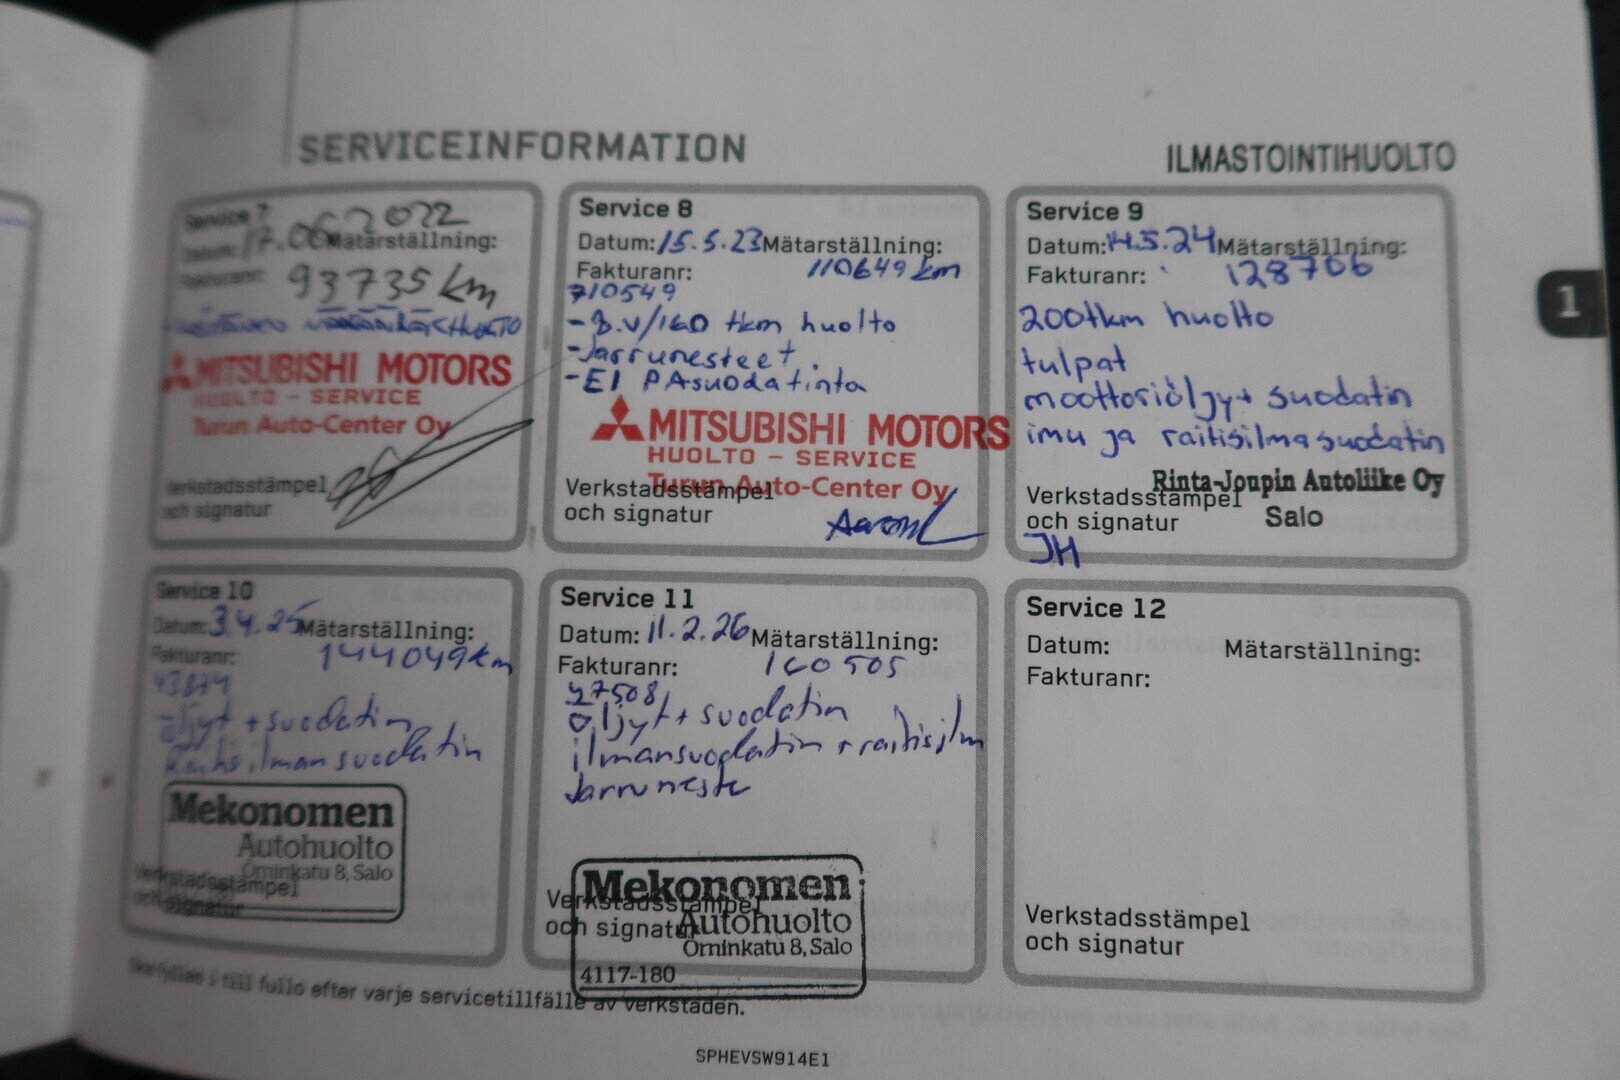 SERVICEINFORMATION
ILMASTOINTIHUOLTO
Service 7
Datum: 17.06.2022 Mätarställning:
Fakturanr: 93735 km
MÄÄRÄAIKAISHUOLTO
MITSUBISHI MOTORS
HUOLTO - SERVICE
Turun Auto-Center Oy
Verkstadsstämpel
och signatur
Service 8
Datum: 15.5.23 Mätarställning:
Fakturanr: 110649 km
710549
- 8.v/160 tkm huolto
- Jarrunesteet.
- EI PAsuodatinta
MITSUBISHI MOTORS
HUOLTO - SERVICE
Turun Auto-Center Oy
Verkstadsstämpel
och signatur
Service 9
Datum: 14.5.24 Mätarställning:
Fakturanr: 128706
200tkm huolto
tulpat
moottoriöljy+ suodatin
imu ja raitisilmasuodatin
Rinta-Joupin Autoliike Oy
Verkstadsstämpel
och signatur Salo
JH
Service 10
Datum: 3.4.25 Mätarställning:
Fakturanr: 144049km
43874
öljyt + suodatin
Raitisilmansuodatin
Mekonomen
Autohuolto
Örninkatu 8, Salo
Verkstadsstämpel
och signatur
Service 11
Datum: 11.2.26 Mätarställning:
Fakturanr: 160505
47508
öljyt + suodatin
ilmansuodatin + raitisilm
Jarruneste
Mekonomen
Verkstadsstämpel
Autohuolto
och signatur
Örninkatu 8, Salo
4117-180
Service 12
Datum: Mätarställning:
Fakturanr:
Verkstadsstämpel
och signatur
Ska fyllas i till fullo efter varje servicetillfälle av verkstaden.
SPHEVSW914E1
1